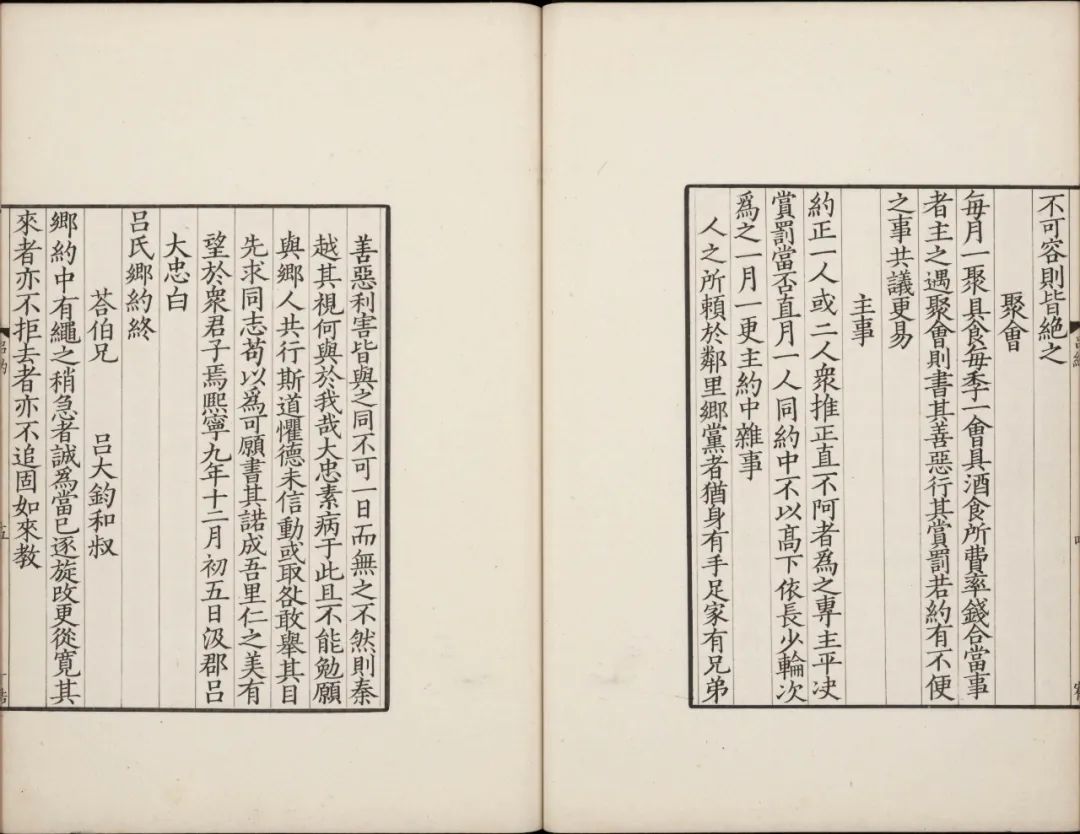 不可容則皆絶之
聚會
每月一聚具食每季一會具酒食所費率錢合當事
者主之遇聚會則書其善惡行其賞罰若約有不便
之事共議更易
主事
約正一人或二人衆推正直不阿者爲之專主平决
賞罰當否直月一人同約中不以髙下依長少輪次
爲之一月一更主約中雜事
人之所頼於鄰里鄉黨者猶身有手足家有兄弟
善惡利害皆與之同不可一日而無之不然則秦
越其視何與於我哉大忠素病于此且不能勉願
與鄉人共行斯道懼德未信動或取咎敢舉其目
先求同志苟以爲可願書其諾成吾里仁之美有
望於衆君子焉熙寧九年十二月初五日汲郡吕
大忠白
吕氏鄉約終
荅伯兄 吕大鈞和叔
鄉約中有繩之稍急者誠爲當已逐旋改更從寛其
來者亦不拒去者亦不追固如來教